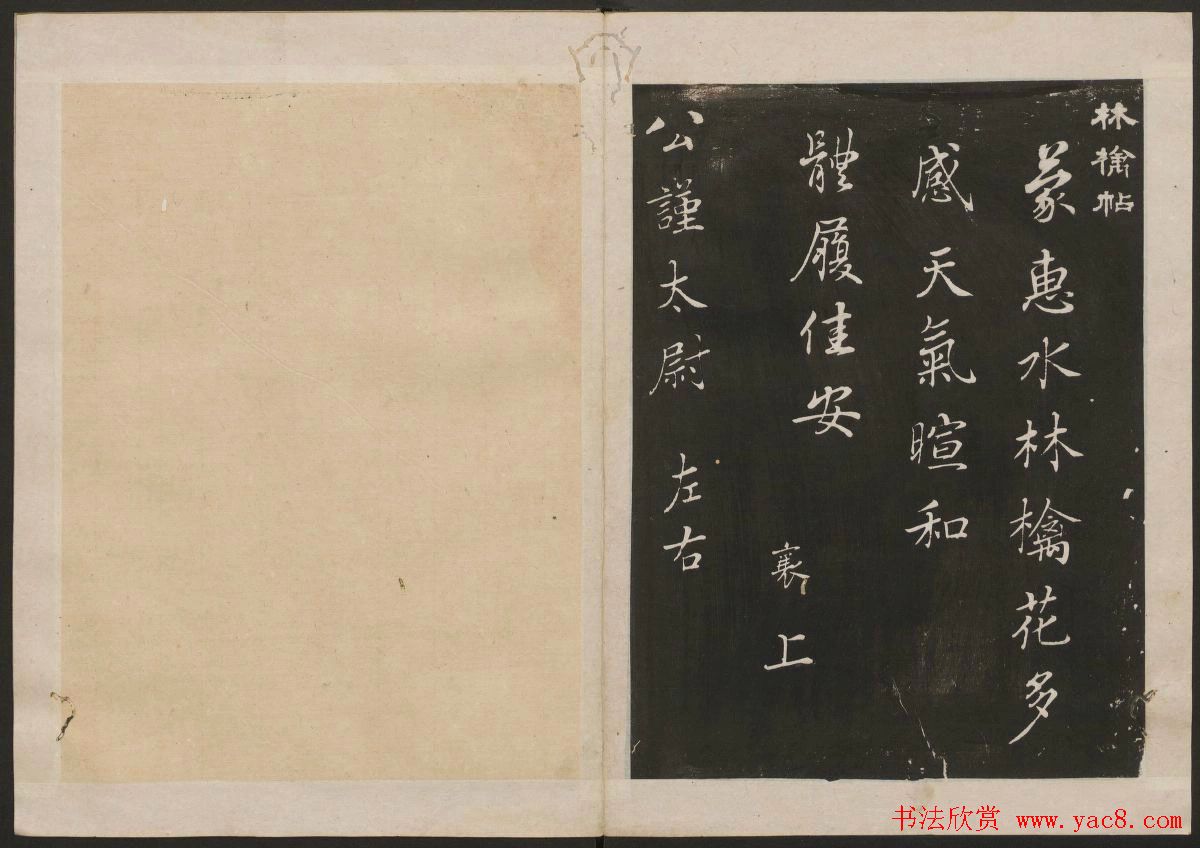 林檎帖
蒙惠水林檎花多
感天氣暄和
體履佳安
襄上
公謹太尉 左右
书法欣赏 www.yac8.com